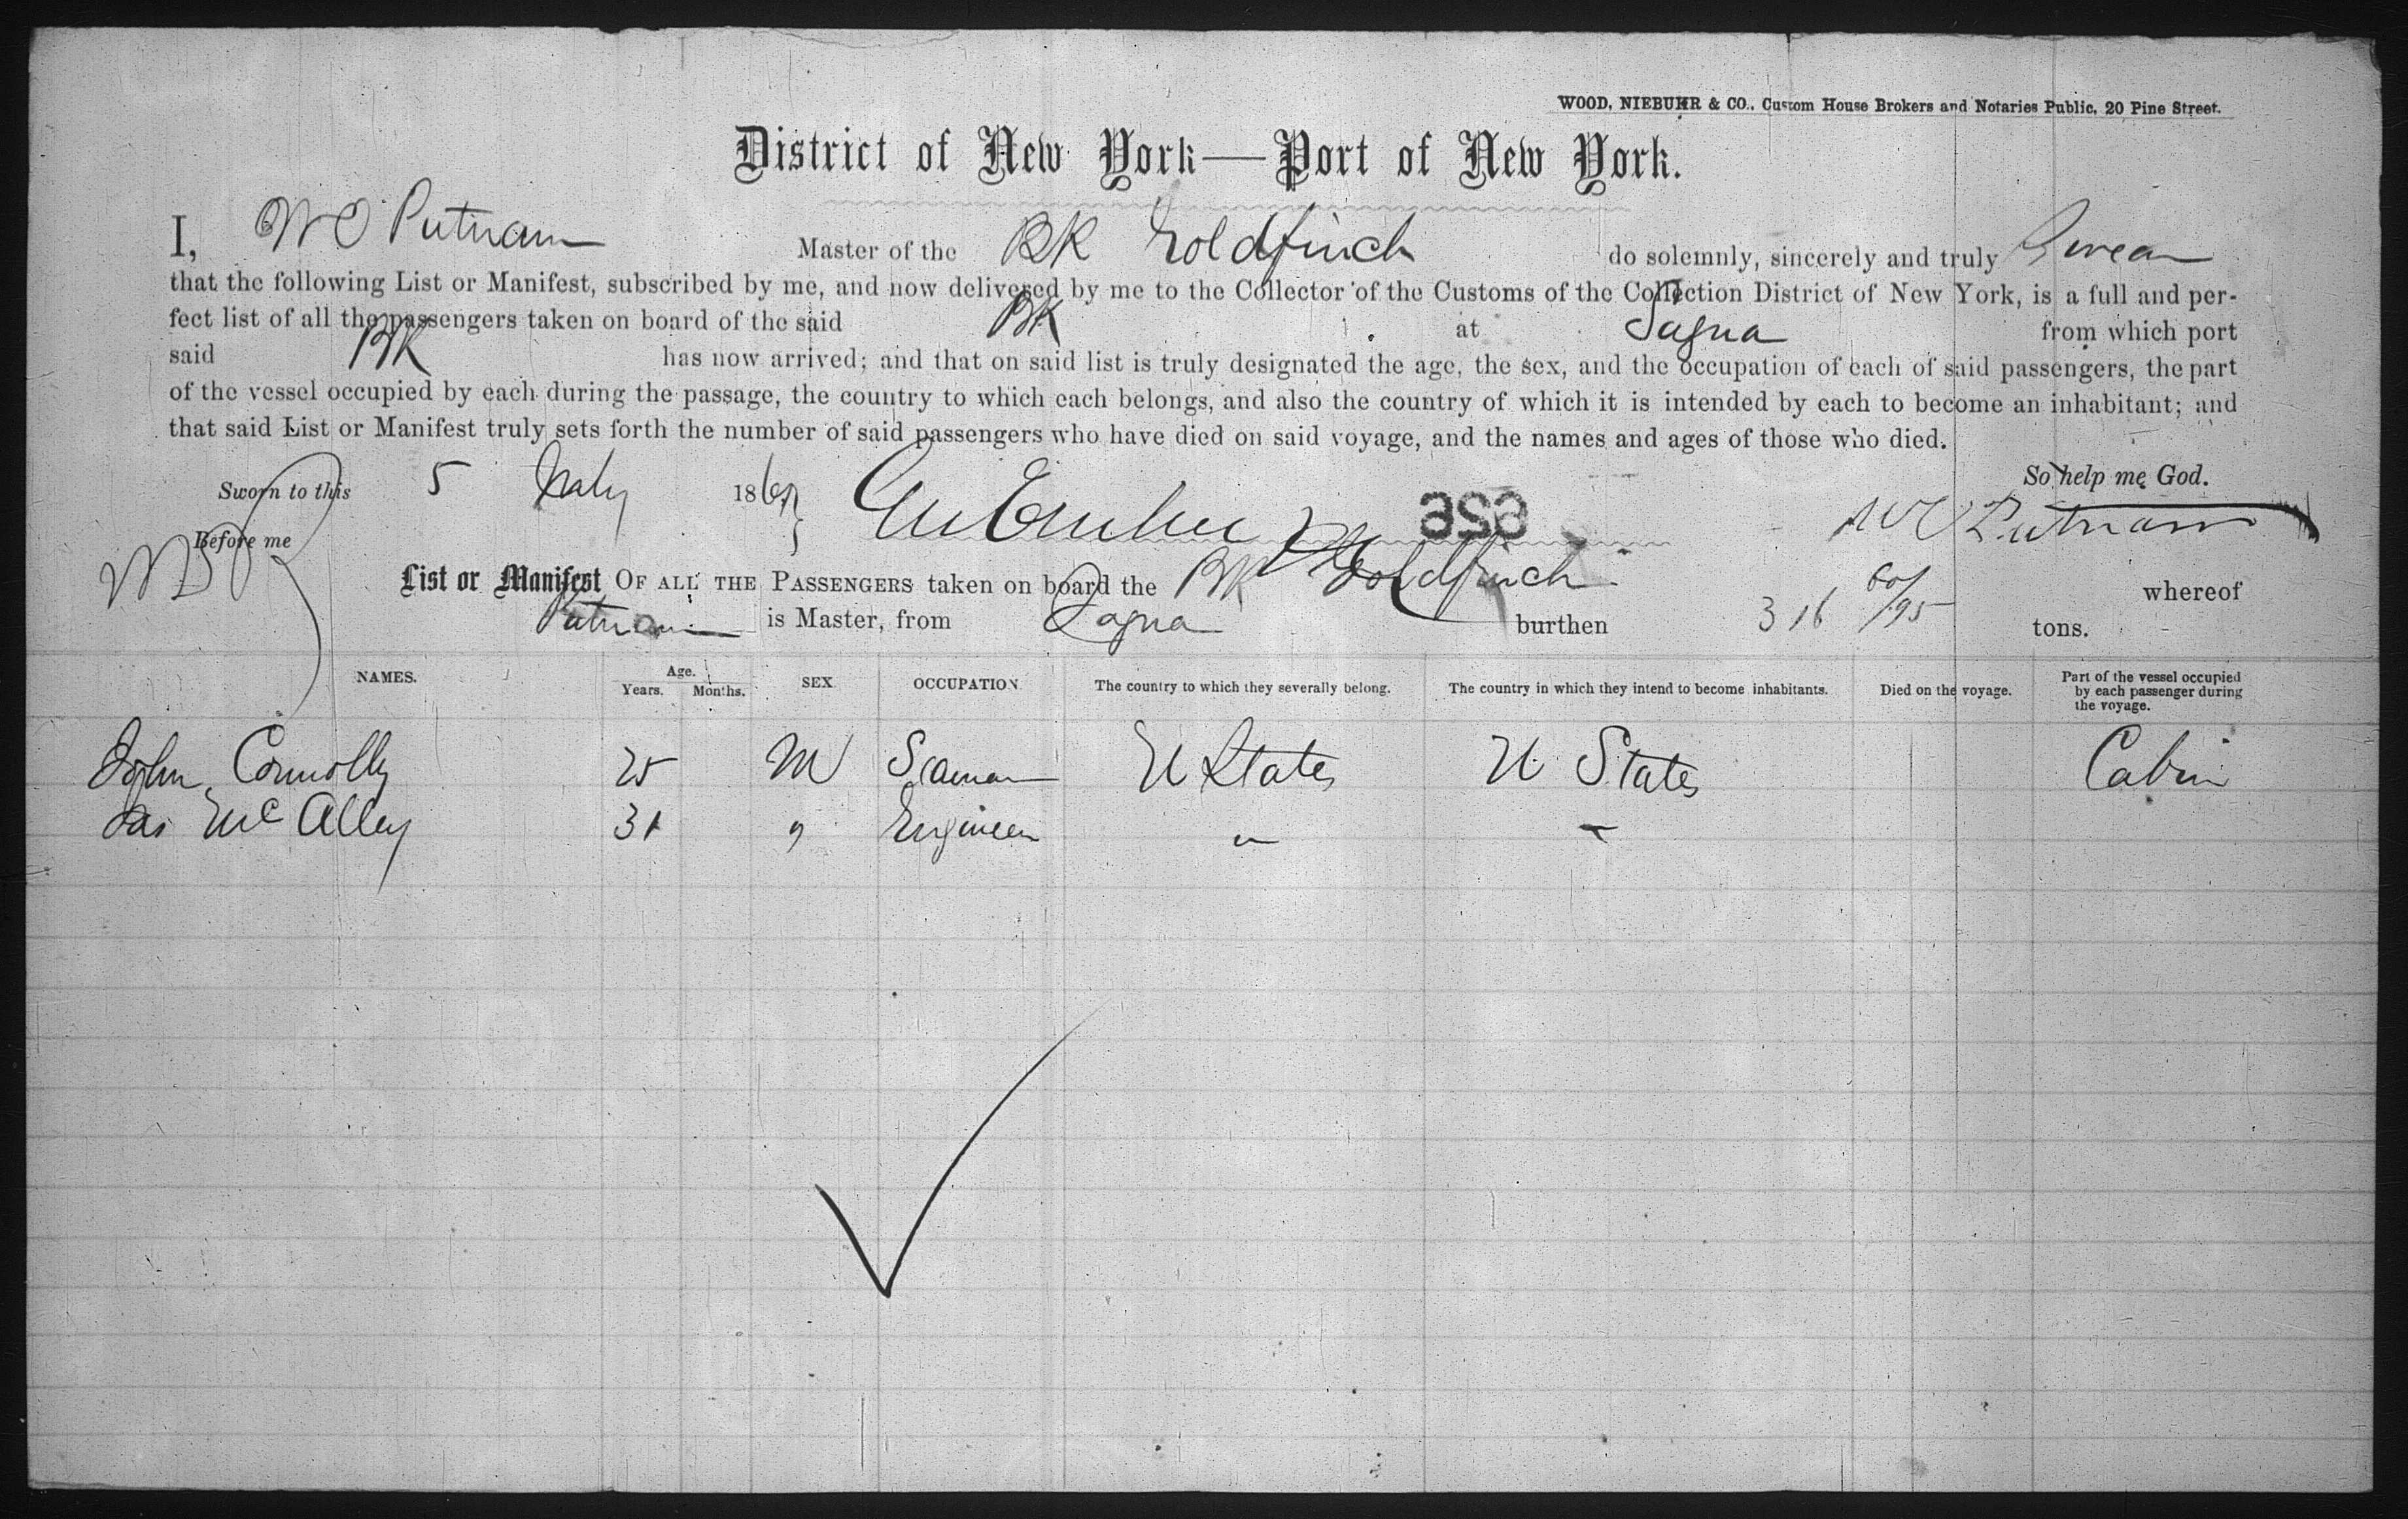 WOOD, NIEBUHR & CO., Custom House Brokers and Notaries Public, 20 Pine Street.
District of New York—Port of New York.
I, W O Putnam Master of the BK Goldfinch do solemnly, sincerely and truly Swear
that the following List or Manifest, subscribed by me, and now delivered by me to the Collector of the Customs of the Collection District of New York, is a full and per-
fect list of all the passengers taken on board of the said BK at Sagua from which port
said BK has now arrived; and that on said list is truly designated the age, the sex, and the occupation of each of said passengers, the part
of the vessel occupied by each during the passage, the country to which each belongs, and also the country of which it is intended by each to become an inhabitant; and
that said List or Manifest truly sets forth the number of said passengers who have died on said voyage, and the names and ages of those who died.
So help me God.
Sworn to this 5 186
Before me
W O Putnam
List or Manifest OF ALL THE PASSENGERS taken on board the BK Goldfinch whereof
Putnam is Master, from Sagua burthen 316 /95 tons.
NAMES. Age. Years. Months. SEX. OCCUPATION The country to which they severally belong. The country in which they intend to become inhabitants. Died on the voyage. Part of the vessel occupied by each passenger during the voyage.
John Connolly 25 M Seaman U States U States Cabin
Jas McAlley 31 " Engineer " "